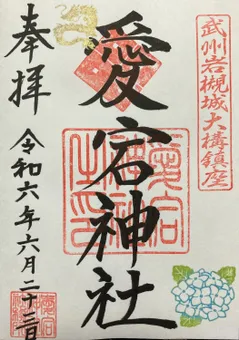 武州岩槻城大構鎮座
愛宕神社
奉拝
令和六年六月二十二日